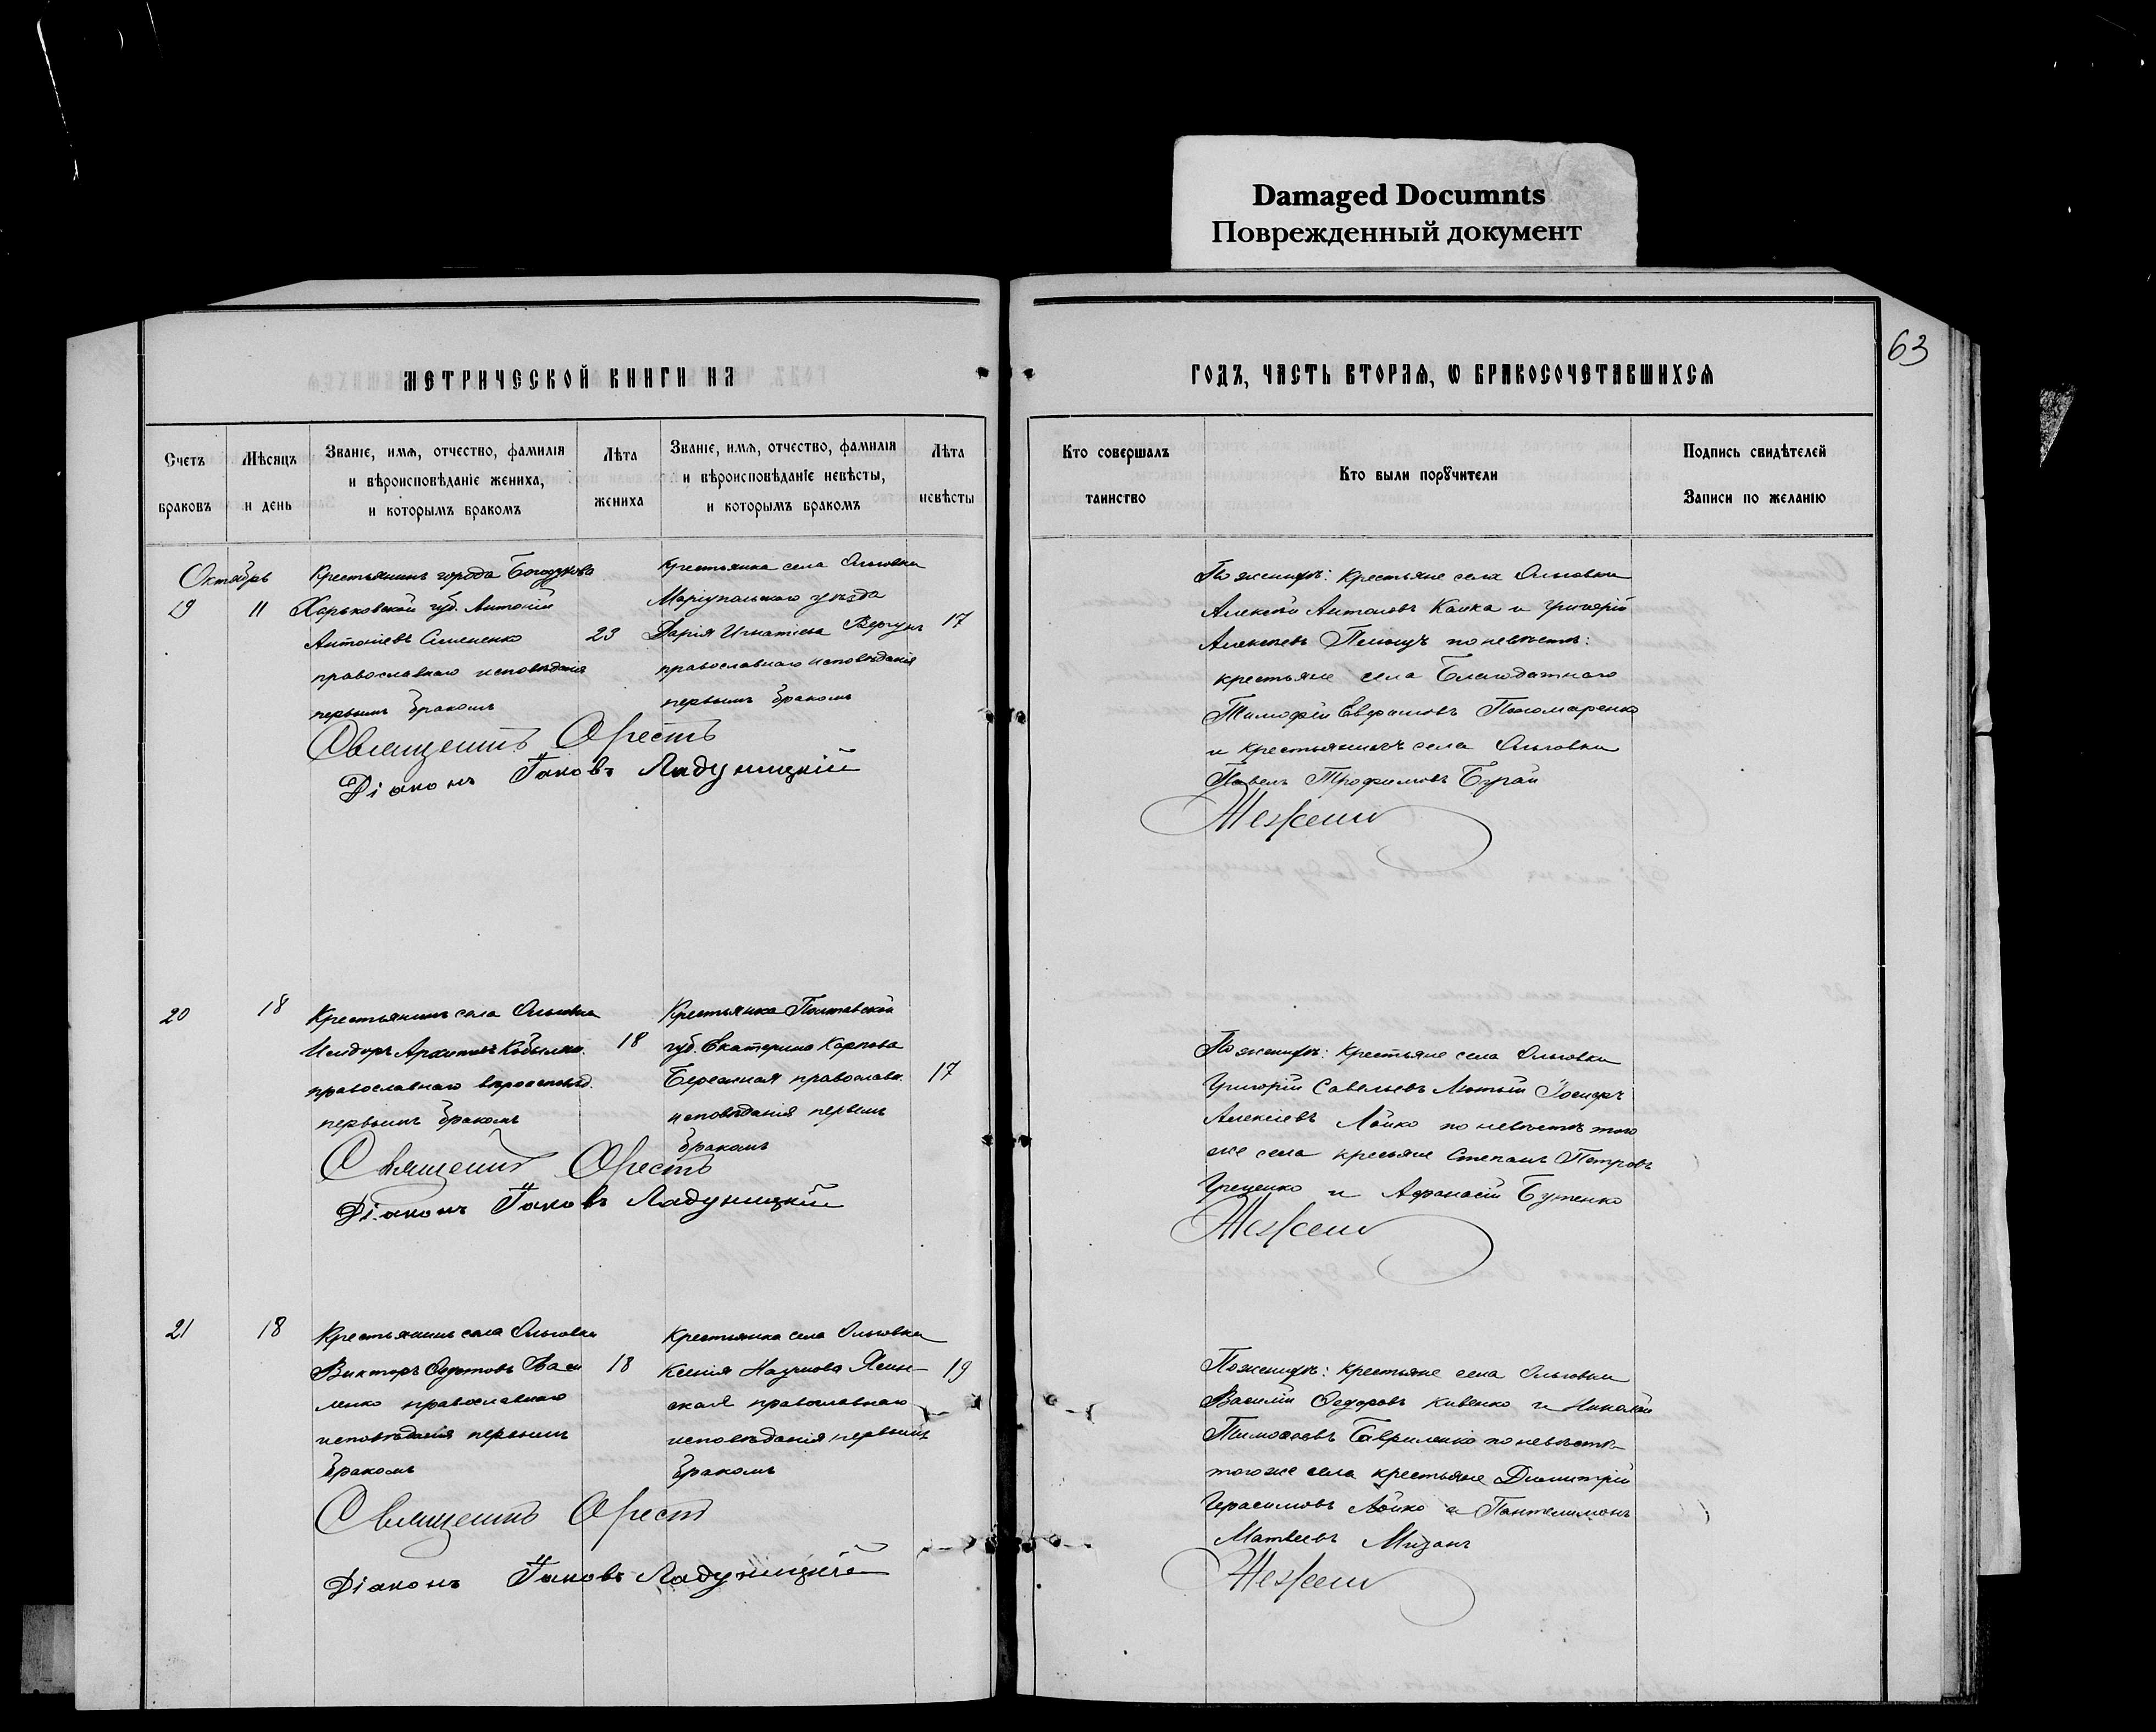 Damaged Documnts
Поврежденный документ
63
МЕТРИЧЕСКОЙ КНИГИ НА
ГОДЪ, ЧАСТЬ ВТОРАЯ, Ѡ БРАКОСОЧЕТАВШИХСЯ
Счетъ
браковъ
Мѣсяцъ
и день
Званіе, имя, отчество, фамилія
и вѣроисповѣданіе жениха,
и которымъ бракомъ
Лѣта
жениха
Званіе, имя, отчество, фамилія
и вѣроисповѣданіе невѣсты,
и которымъ бракомъ
Лѣта
невѣсты
Кто совершалъ
таинство
Кто были порꙋчители
Подпись свидѣтелей
Записи по желанію
Октябрь
19
11
Крестьянинъ города Богодухова
Харьковской губ. Антоній
Антоніевъ
православнаго исповѣданія
первымъ бракомъ
23
Крестьянка села Ольговки
Маріупольскаго уѣзда
Дарія Игнатіева Вергунъ
православнаго исповѣданія
первымъ бракомъ
17
Священникъ Орестъ
Діаконъ Іаковъ Ладуницкій
По женихѣ: крестьяне села Ольговки
Алексѣй Антоновъ и Григорій
Алексѣевъ по невѣстѣ:
крестьяне села Благодатнаго
Тимофѣй Пономаренко
и крестьянинъ села Ольговки
Павелъ Трофимовъ Бурай
20
18
Крестьянинъ села Ольговки
Исидоръ
православнаго вѣроисповѣд.
первымъ бракомъ
18
Крестьянка Полтавской
губ. Екатерина Карпова
Бережная православн.
исповѣданія первымъ
бракомъ
17
Священникъ Орестъ
Діаконъ Іаковъ Ладуницкій
По женихѣ: крестьяне села Ольговки
Григорій Савельевъ Лютый
Алексѣевъ Лойко по невѣстѣ того
же села кресьяне Степанъ Петровъ
Греценко и Афанасій Бутенко
21
18
Крестьянинъ села Ольговки
Викторъ
ленко православнаго
исповѣданія первымъ
бракомъ
18
Крестьянка села Ольговки
Ксенія Наумова Ясин-
ская православнаго
исповѣданія первымъ
бракомъ
19
Священникъ Орестъ
Діаконъ Іаковъ Ладуницкій
По женихѣ: крестьяне села Ольговки
Василій Ѳедоровъ Кивенко и Николай
Тимоѳеевъ Гавриленко по невѣстѣ
того же села крестьяне Димитрій
Герасимовъ Лойко и Пантелимонъ
Матвѣевъ